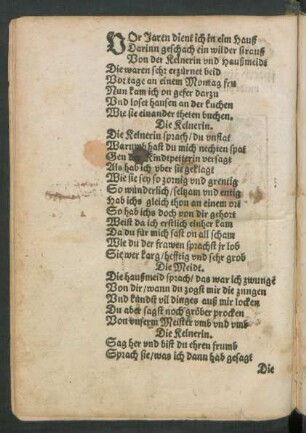 VOr Jaren dient ich in eim Hauß
Darinn geschach ein wilder strauß
Von der Kelnerin vnd Haußmeidt
Die waren sehr erzürnet beid
Vor tage an einem Montag fru
Nun kam ich on gefer darzu
Vnd loset haussen an der kuchen
Wie sie einander theten buchen.
Die Kelnerin.
Die Kelnerin sprach / du vnflat
Warumb hast du mich nechten spat
Gen Kindtpetterin versagt
Als hab ich vber sie geklagt
Wie sie sey so zornig vnd grentig
So wünderlich / seltzam vnd entig
Hab ichs gleich thon an einem ort
So hab ichs doch von dir gehort
Weist da ich erstlich einher kam
Da du für mich sast on all scham
Wie du der frawen sprachst jr lob
Sie wer karg / hefftig vnd sehr grob
Die Meidt.
Die haußmeid sprach / das war ich zwungē
Von dir / wann du zogst mir die zungen
Vnd kündst vil dinges auß mir locken
Du aber sagst noch gröber procken
Von vnserm Meister vmb vnd vmb
Die Kelnerin.
Sag her vnd bist du ehren frumb
Sprach sie / was ich dann hab gesagt
Die